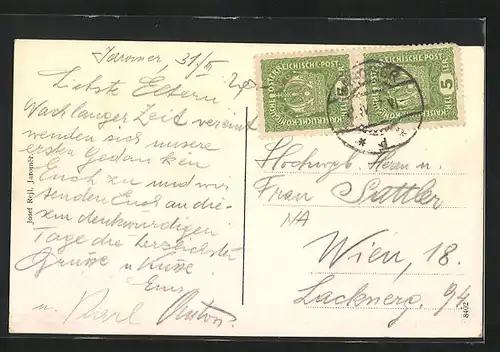 Jaromer 31/III
Liebste Eltern!
Nach langer Zeit vereint
wenden sich unsere
erste Gedanken
Euch zu und wir
senden Euch an die-
sem denkwürdigen
Tage die herzlichsten
Grüsse u Küsse
Emy
u. Karl Anton.
Josef Rejl, Jaroměř.
KAISERLICHE KÖNIGLICHE ÖSTERREICHISCHE POST
5 HELLER 5
KAISERLICHE KÖNIGLICHE ÖSTERREICHISCHE POST
5 HELLER 5
Hochwgb. Herrn u.
Frau Sattler
NA
Wien, 18.
Lacknerg. 94
8402